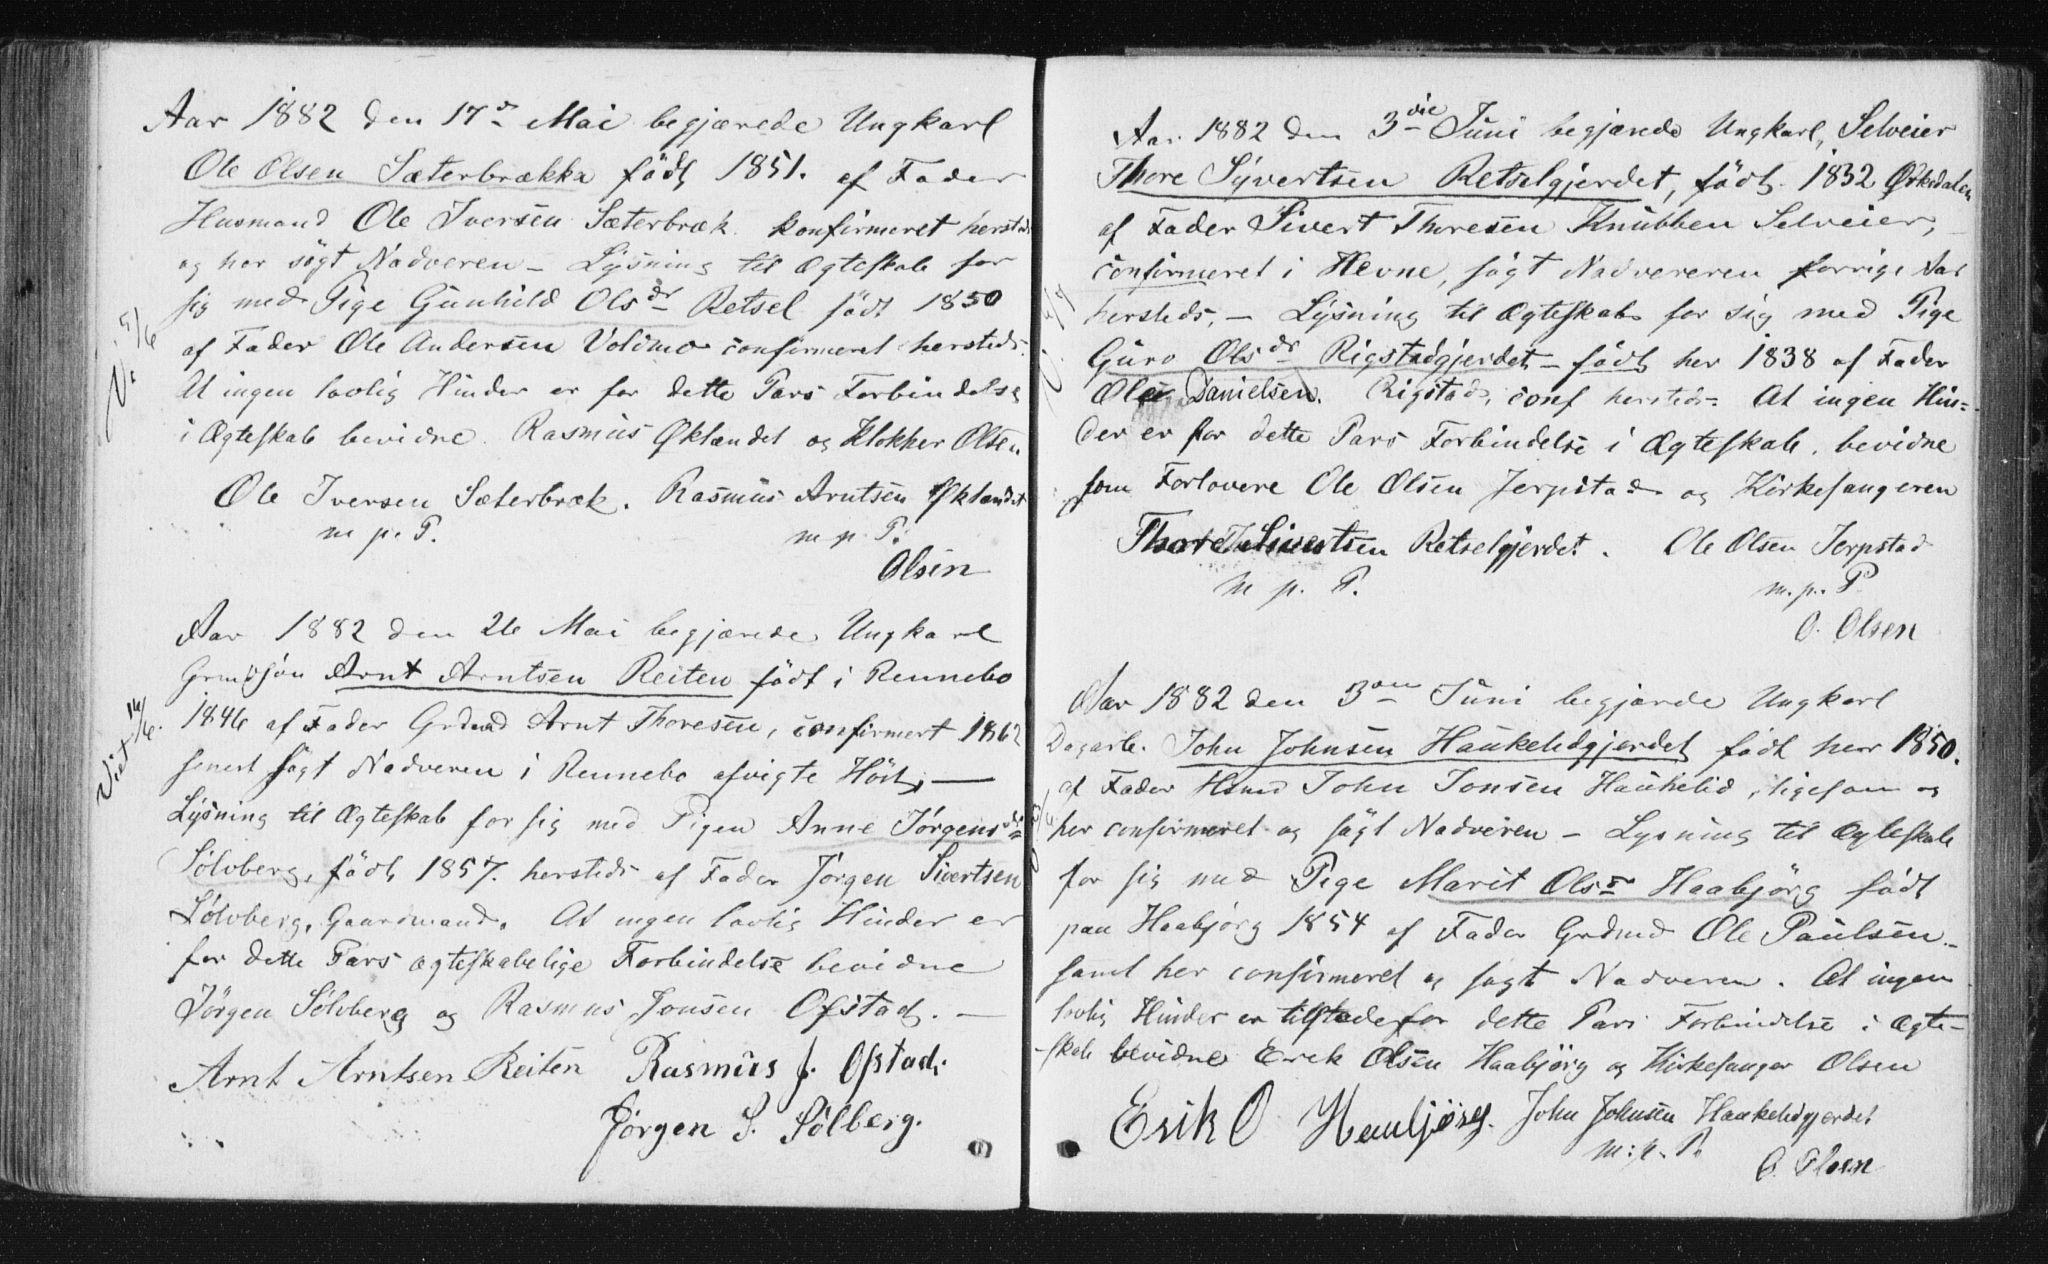 Aar 1882 den 17de Mai begjærede Ungkarl
Ole Olsen Sæterbrækka född 1851. af Fader
Husmand Ole Iversen Sæterbræk. konfirmeret hersteds
og har sögt Nadveren – Lysning til Ægteskab for
sig med Pige Gunhild Olsdr Retsel födt 1850
af Fader Ole Andersen Volimo confirmeret hersteds.
At ingen lovlig Hinder er for dette Pars Forbindelse
i Ægteskab bevidne Rasmus Øklandet og Klokker Olsen.
V. 5/6
Ole Iversen Sæterbræk. Rasmus Arntsen Øklandet
m. p. P. m. p. P.
Olsen
Aar 1882 den 26 Mai begjærede Ungkarl
Grmdsjön Arnt Arntsen Reiten födt i Rennebo
1846 af Fader Grdmd Arnt Thoresen, confirmert 1862
senest sögt Nadveren i Rennebo afvigte Höst, —
Lysning til Ægteskab for sig med Pigen Anne Jörgensdr
Sölvberg, född 1857. hersteds af Fader Jörgen Sivertsen
Sölvberg, Gaardmand. At ingen lovlig Hinder er
for dette Pars ægteskabelige Forbindelse bevidne
Jörgen Sölvberg og Rasmus Jonsen Ofstad. —
Viet 16/6.
Arnt Arntsen Reiten Rasmus J. Ofstad.
Jörgen S. Sölberg.
Aar 1882 den 3die Juni begjærede Ungkarl, Selveier
Thore Syvertsen Retselgjerdet, födt 1832 Orkedalen
af Fader Sivert Thoresen Knubben Selveier,
confirmeret i Hevne, sögt Nadvereren forrige Aar
hersteds. – Lysning til Ægteskab for sig med Pige
Guro Olsdr Rigstadgjerdet – födt her 1838 af Fader
Ole Danielsen Rigstad, conf hersteds. At ingen Hin-
der er for dette Pars Forbindelse i Ægteskab, bevidne
som Forlovere Ole Olsen Jerpstad og Kirkesangeren
Thore Sivertsen Retselgjerdet. Ole Olsen Jerpstad
m. p. P. m. p. P.
O. Olsen
Aar 1882 den 3die Juni begjærde Ungkarl
Dagarb. John Johnsen Haukelidgjerdet födt her 1850.
af Fader Hsmd John Jonsen Haukelid, ligesom og
her confirmeret og sögt Nadveren – Lysning til Ægteskab
for sig med Pige Marit Olsdr Haabjörg födt
paa Haabjörg 1854 af Fader Grdmd Ole Paulsen –
samt her confirmeret og sögt Nadveren. At ingen
lovlig Hinder er tilstede for dette Pars Forbindelse i Ægte-
-skab bevidne Erik Olsen Haabjörg og Kirkesanger Olsen
Erik O Haubjörg. John Johnsen Haukelidgjerdet
m. p. P.
O. Olsen